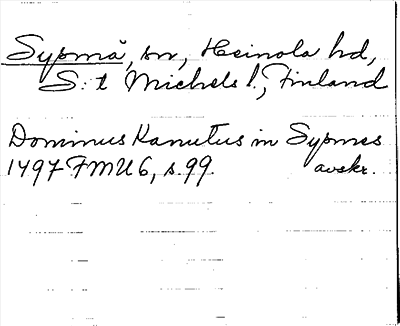 Sypmä, sn, Heinola hd,
S:t Michels l., Finland
Dominus Kanutus in Sypmes
1497 FMU 6, s. 99. avskr.